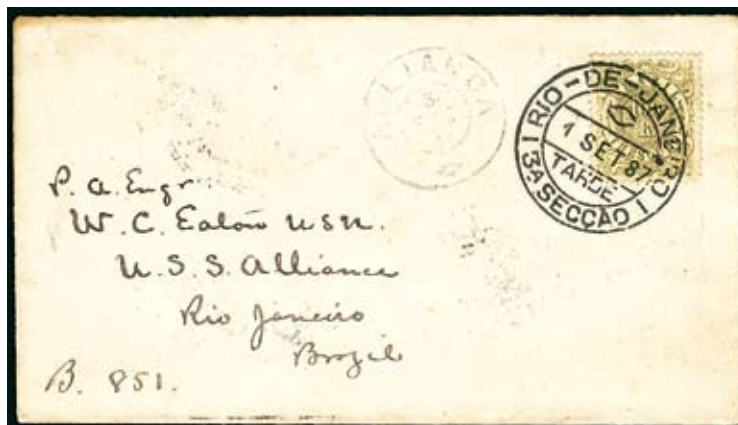 RIO-DE-JANEIRO
1 SET 87
TARDE
3ª SECÇÃO
P. A. Engr
W. C. Eaton USN.
U.S.S. Alliance
Rio Janeiro
Brazil
B. 851.